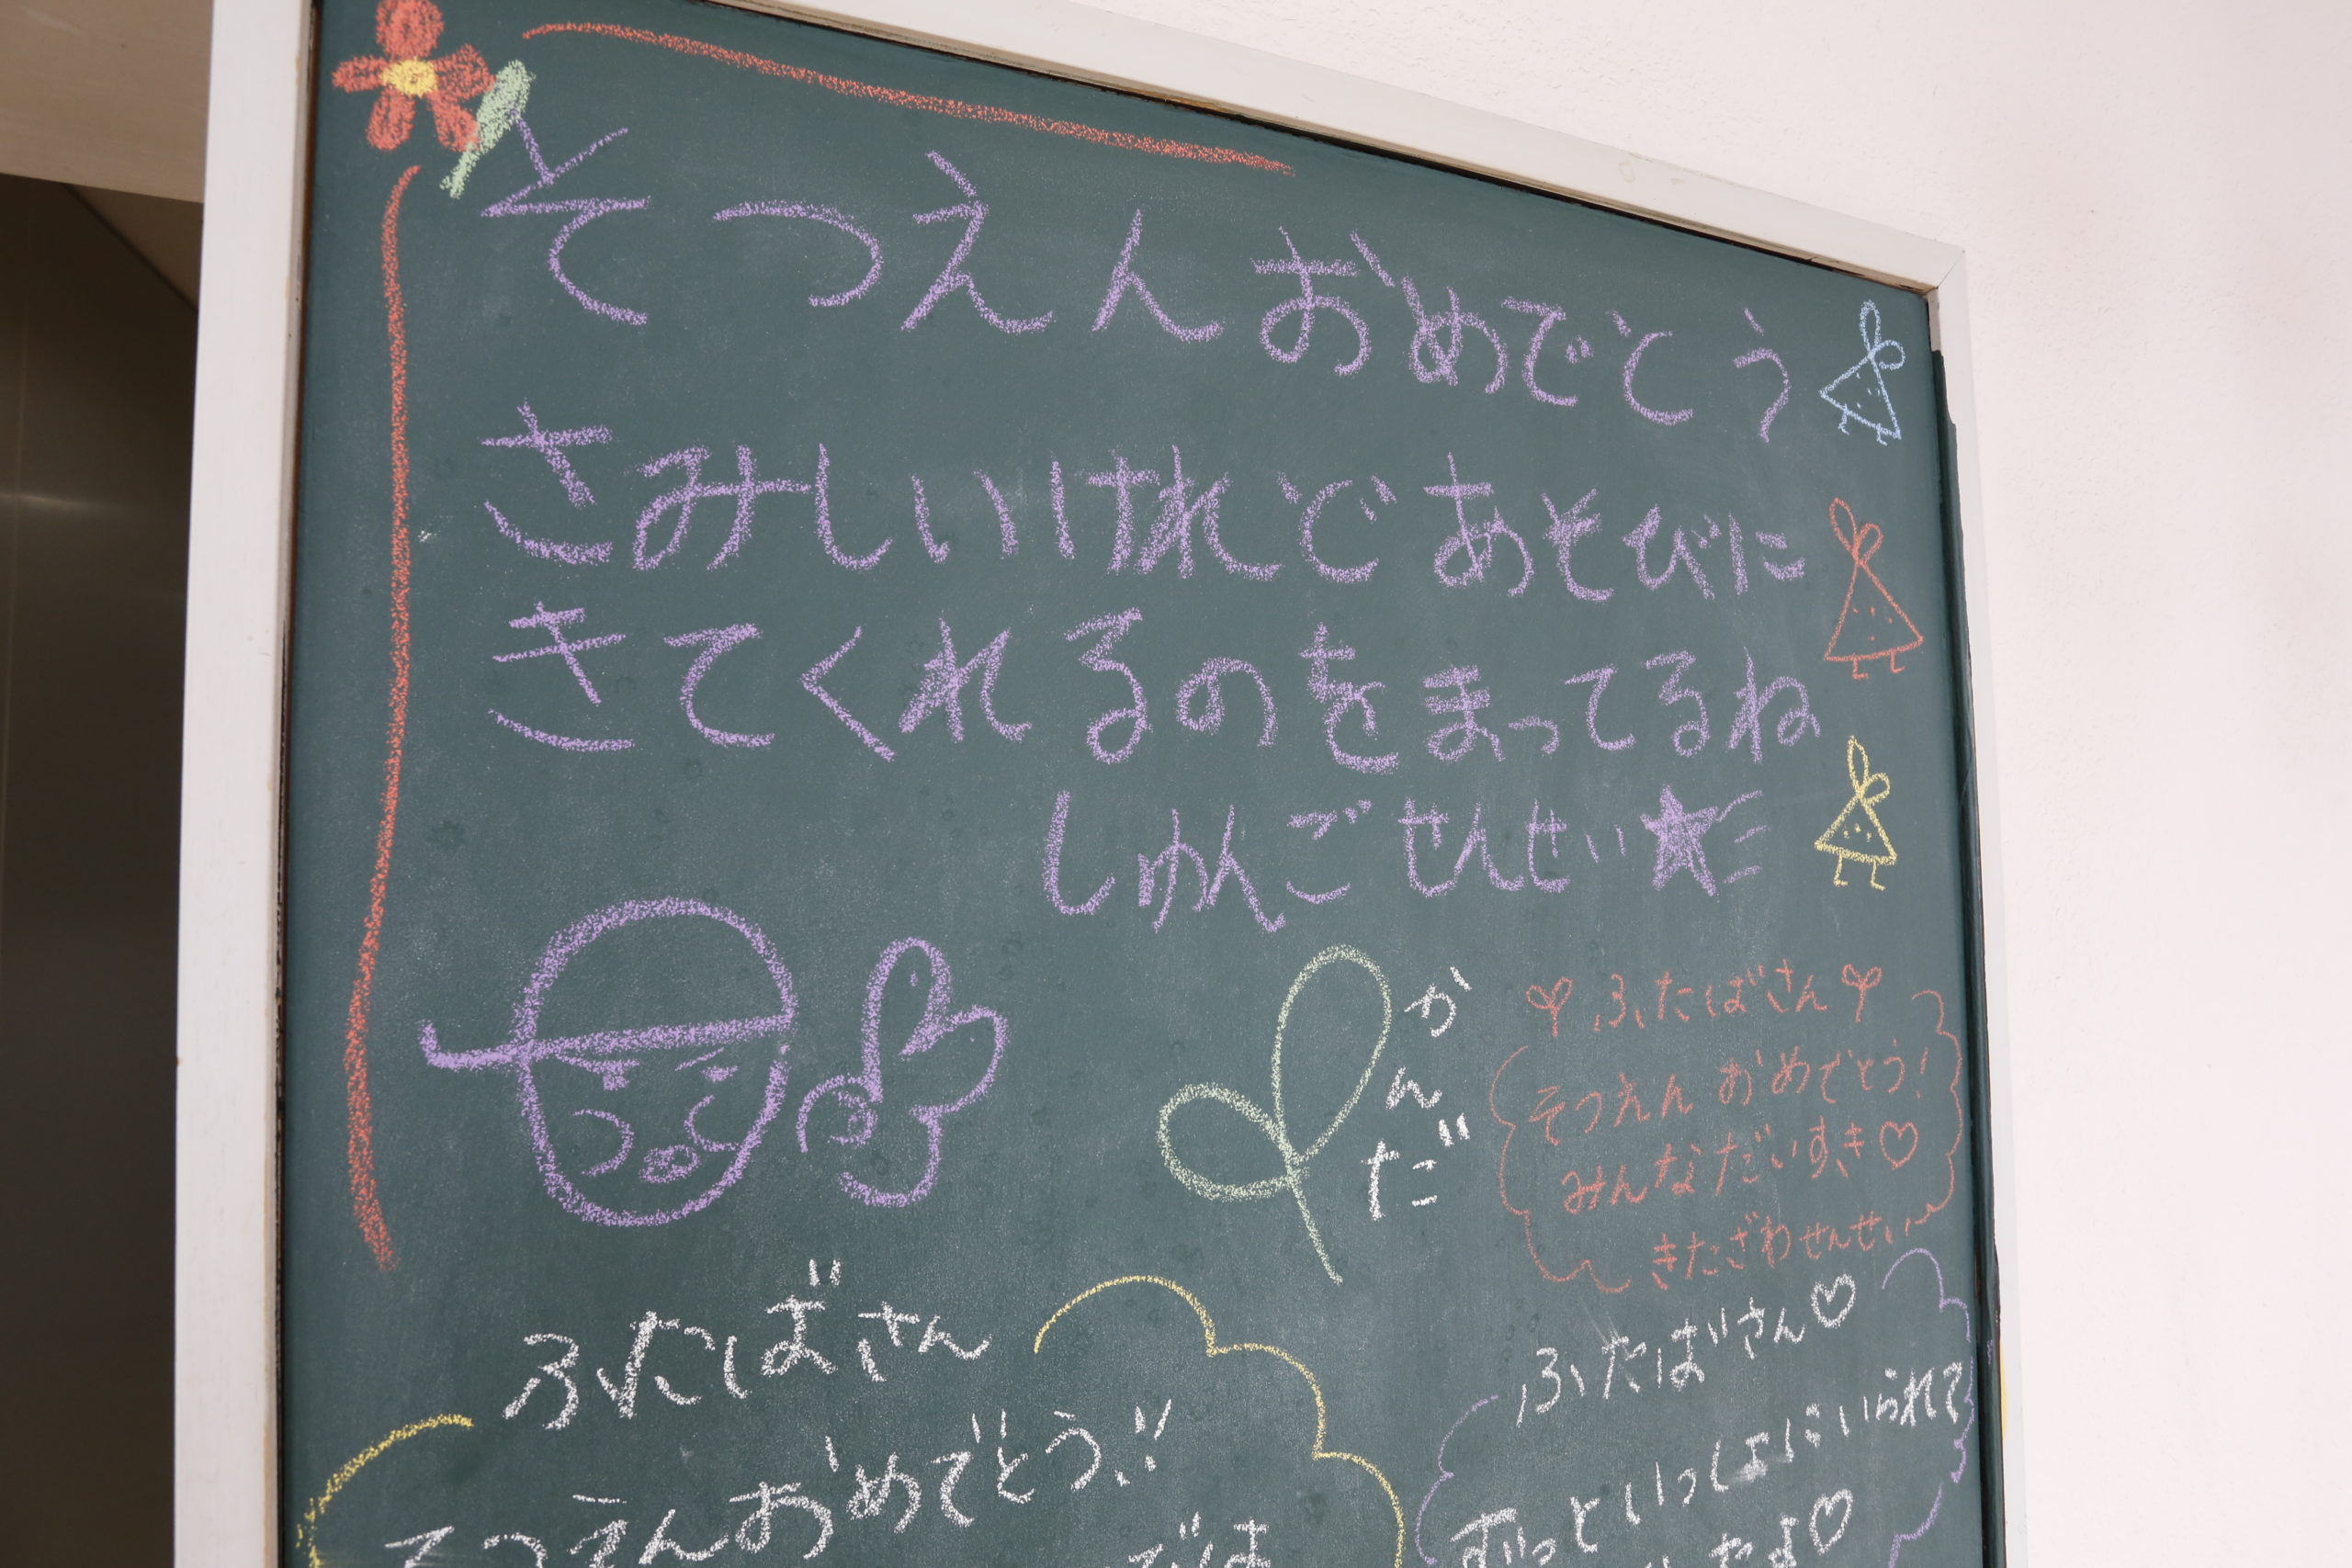 そつえんおめでとう
さみしいけれど あそびに
きてくれるのをまってるね
しゅんごせんせい
かんだ
ふたばさん
そつえん おめでとう!
みんなだいすき♡
きたざわせんせい
ふたばさん
そつえんおめでとう!!
ふたばさん♡
ずっといっしょにいられて